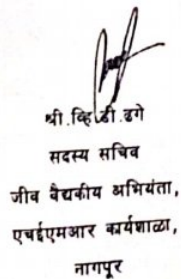 श्री.व्हि.डी.ढगे
सदस्य सचिव
जीव वैद्यकीय अभियंता,
एचईएमआर कार्यशाळा,
नागपूर